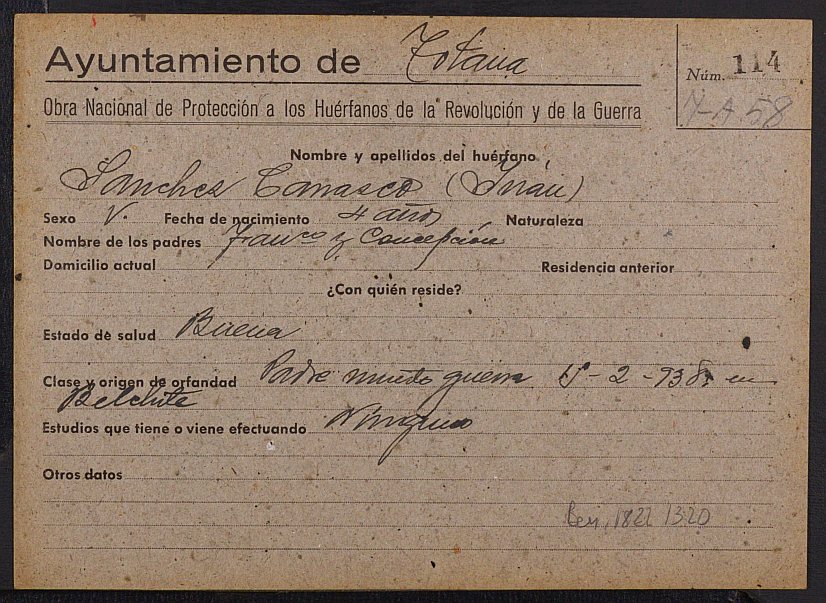 Ayuntamiento de Totana
Núm. 114
7-A 58
Obra Nacional de Protección a los Huérfanos de la Revolución y de la Guerra
Nombre y apellidos del huérfano
Sanchez Carrasco (Juan)
Sexo V. Fecha de nacimiento 4 años Naturaleza
Nombre de los padres Franco y Concepción
Domicilio actual Residencia anterior
¿Con quién reside?
Estado de salud Buena
Clase y origen de orfandad Padre muerto guerra -2-938 en
Belchite
Estudios que tiene o viene efectuando Ninguno
Otros datos
1822 1320